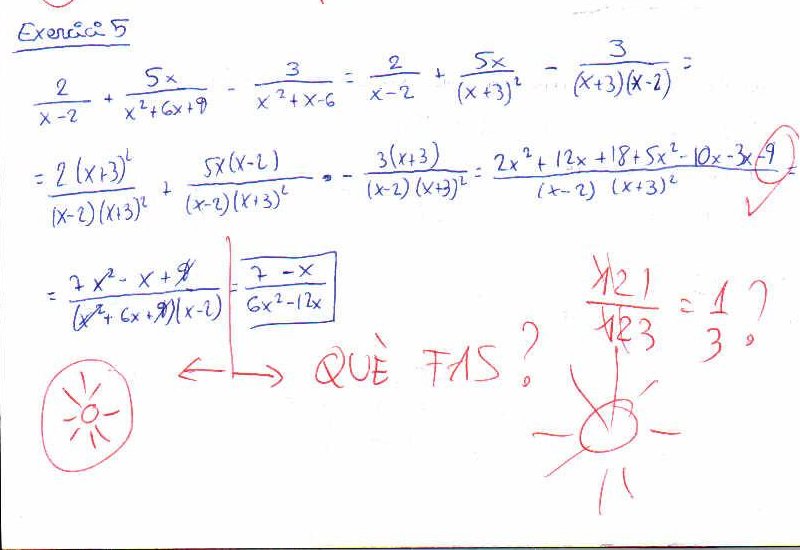 Exercici 5
2/(x-2) + 5x/(x²+6x+9) - 3/(x²+x-6) = 2/(x-2) + 5x/(x+3)² - 3/((x+3)(x-2)) =
= 2(x+3)²/((x-2)(x+3)²) + 5x(x-2)/((x-2)(x+3)²) - 3(x+3)/((x-2)(x+3)²) = (2x²+12x+18+5x²-10x-3x-9)/((x-2)(x+3)²) =
= (7x²-x+9)/((x²+6x+9)(x-2)) = (7-x)/(6x²-12x)
121/123 = 1/3?
QUÈ FAS?